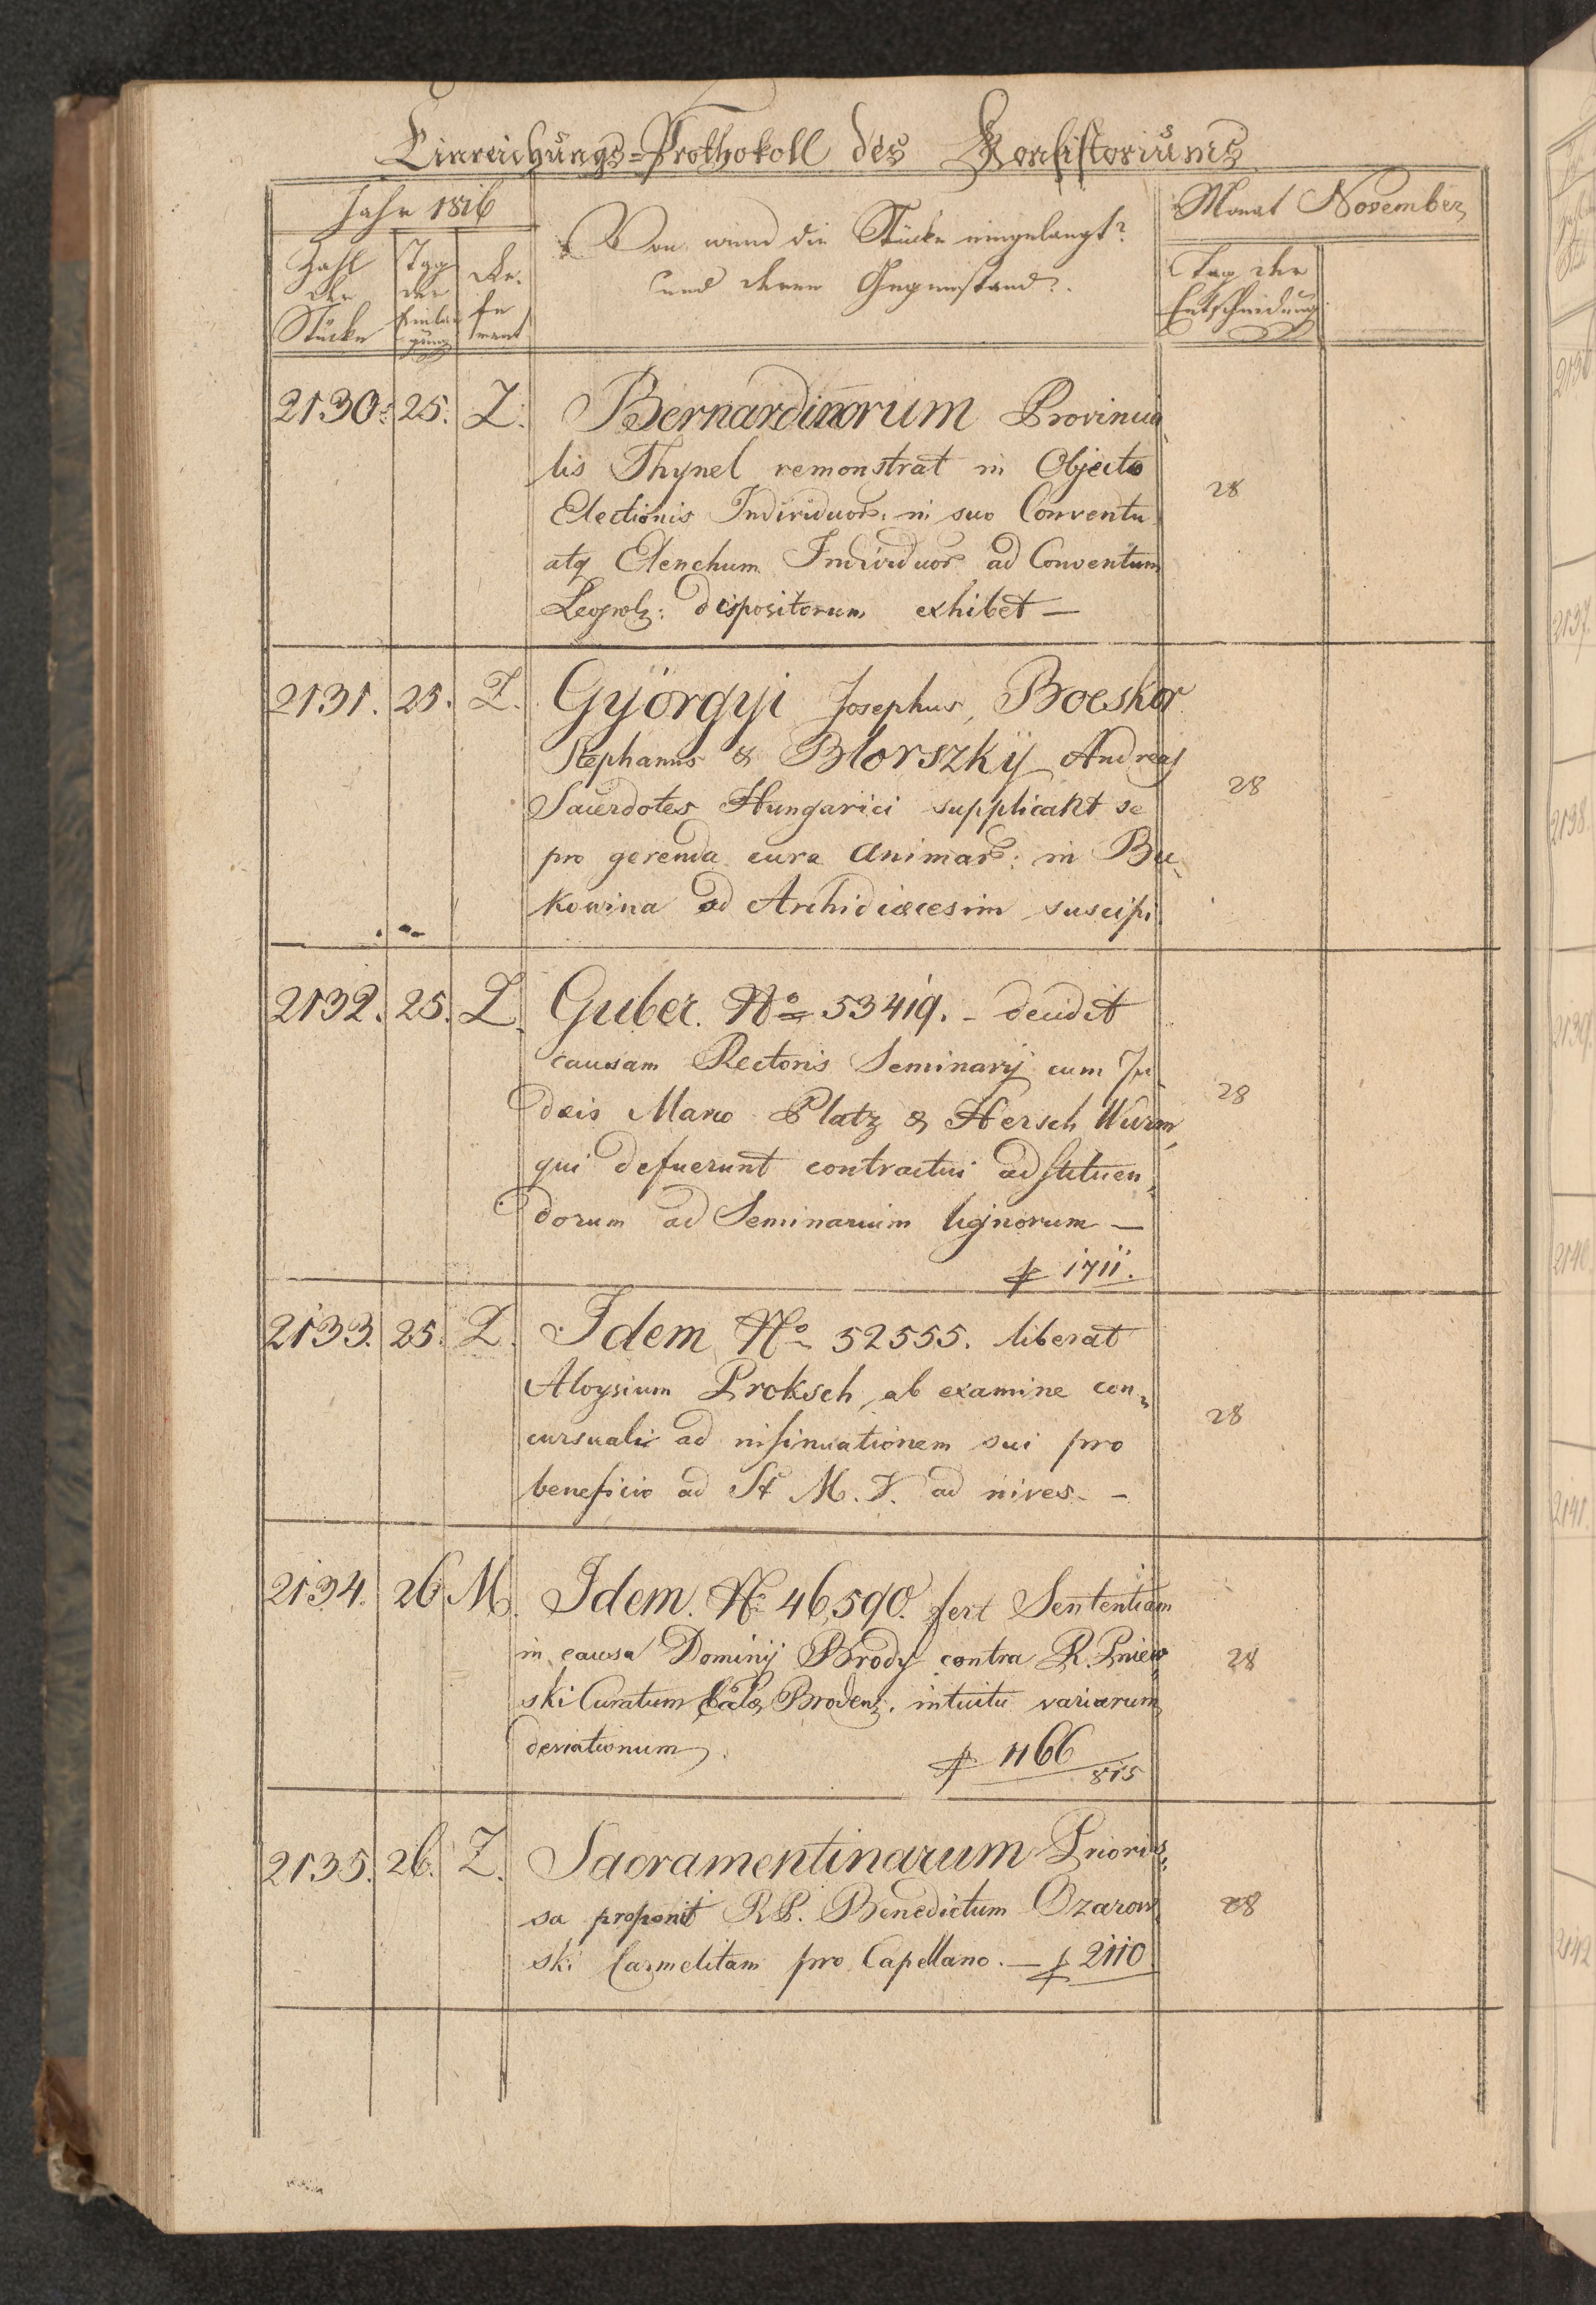 Einreichungs=Prothokoll des Konsistoriums
Jahr 1816
Monat November
Zahl der Stücke
Tag der Einlangung
Referent
Von wem die Stücke eingelangt?
und deren Gegenstand?
Tag der
Entscheidung
2130. 25. Z. Bernardinorum Provincia
lis Thynel remonstrat in Objecto
Electionis Individuor. in suo Conventu
atq Elenchum Individuor ad Conventum
dispositorum exhibet —
28
2131. 25. Z. Györgyi Josephus, Boeskor
Stephanus & Blorszkÿ Andreas
Sacerdotes Hungarici supplicant se
pro gerenda cura Animar: in Bu-
kowina ad Archidiœcesim suscipi.
28
2132. 25. Z. Guber. No 53419. - decidit
causam Rectoris Seminarij cum Ju
dæis Marco Platz & Hersch Wurm,
qui defuerunt contractui adstituen-
dorum ad Seminarium lignorum —
f 1711.
28
2133. 25. Z. Idem No 52555. liberat
Aloysium Proksch, ab examine con-
cursuali ad insinuationem sui pro
beneficio ad St M. V. ad nives. -
28
2134. 26 M. Idem. No 46,590. fert Sententiam
in causa Dominij Brody contra R. Pniew
ski Curatum Brodens. intuitu variarum
deviationum.
f 1166
815
28
2135. 26. Z. Sacramentinarum Prioris-
sa proponit RP. Benedictum Ozarow
ski Carmelitam pro Capellano. — f 2110
28